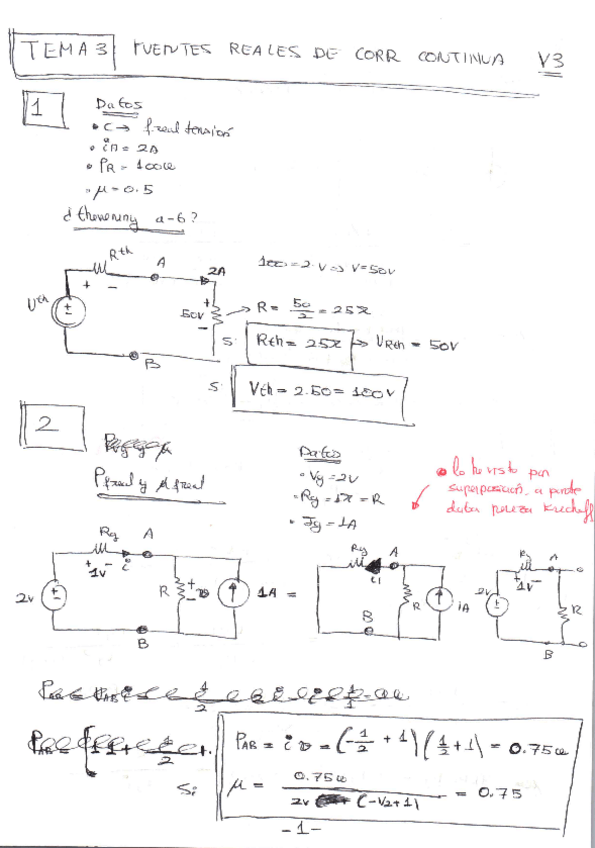 TEMA 3 FUENTES REALES DE CORR CONTINUA V3
1
Datos
• C → freal tensión
• in = 2A
• PR = 100w
• μ = 0.5
d theveniny a-b?
Rth A 2A
+ -
Vth
+
50V
-
B
100 = 2·V ⇒ V = 50V
→ R = 50/2 = 25Ω
S: Rth = 25Ω → VRth = 50V
S: Vth = 2·50 = 100V
2
Pfreal y μ freal
Datos
• Vg = 2V
• Rg = 1Ω = R
• Ig = 1A
• lo he visto por
superposición, a parte
daba pereza Kirchoff
Rg A
+ 1V - i
2V
R + v -
1A =
B
Rg A
i1
R
1A
B
Rg A
+ 1V -
2V
R
B
PAB = i v = (-1/2 + 1) (1/2 + 1) = 0.75w
S: μ = 0.75w / 2v (-1/2+1) = 0.75
- 1 -